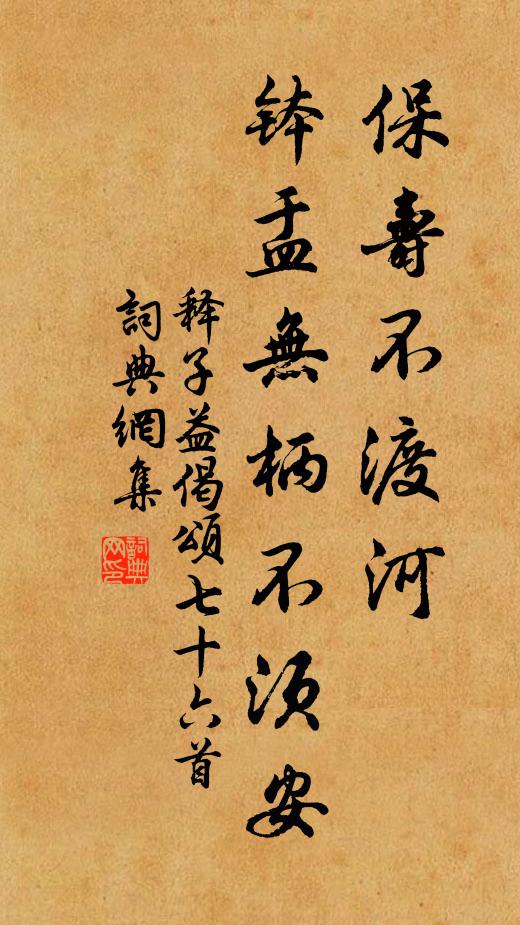 保壽不渡河
鉢盂無柄不須安
释子益偈頌七十六首
詞典網集
詞典網印